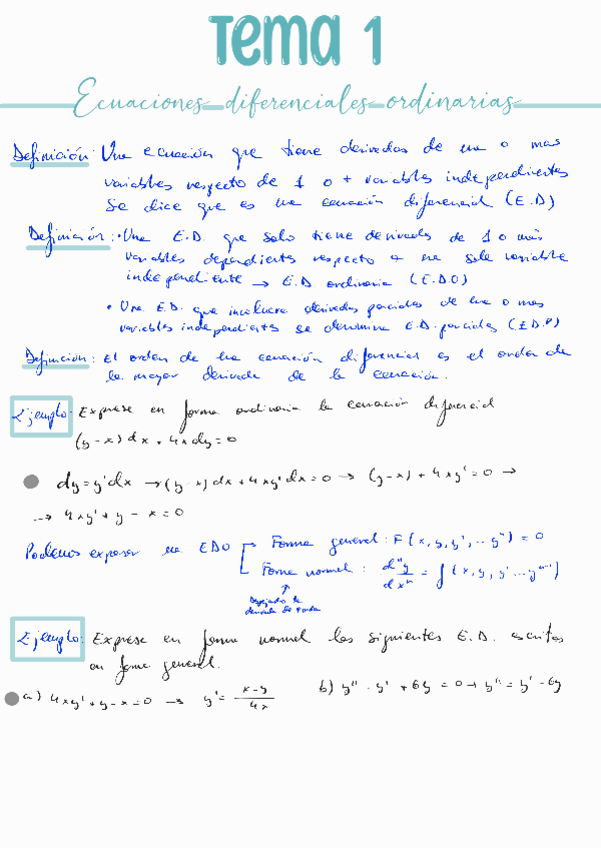 Tema 1
Ecuaciones diferenciales ordinarias
Definición: Una ecuación que tiene derivadas de una o mas
variables respecto de 1 o + variables independientes
se dice que es una ecuación diferencial (E.D)
Definición: • Una E.D. que solo tiene derivadas de 1 o más
variables dependientes respecto a una sola variable
independiente → E.D ordinaria (E.D.O)
• Una E.D. que involucra derivadas parciales de una o mas
variables independients se denomina E.D. parciales (E.D.P)
Definición: El orden de una ecuación diferencial es el orden de
la mayor derivada de la ecuación.
Ejemplo: Exprese en forma ordinaria la ecuación diferencial
(y-x)dx + 4xdy = 0
dy = y'dx → (y-x)dx + 4xy'dx = 0 → (y-x) + 4xy' = 0 →
→ 4xy' + y - x = 0
Podemos expresar una EDO Forma general: F(x, y, y', ... yⁿ) = 0
Forma normal: dⁿy/dxⁿ = f(x, y, y' ... yⁿ⁻¹)
Ejemplo: Exprese en forma normal las siguientes E.D. escritas
en forma general.
a) 4xy' + y - x = 0 → y' = x-y/4x b) y'' - y' + 6y = 0 → y'' = y' - 6y